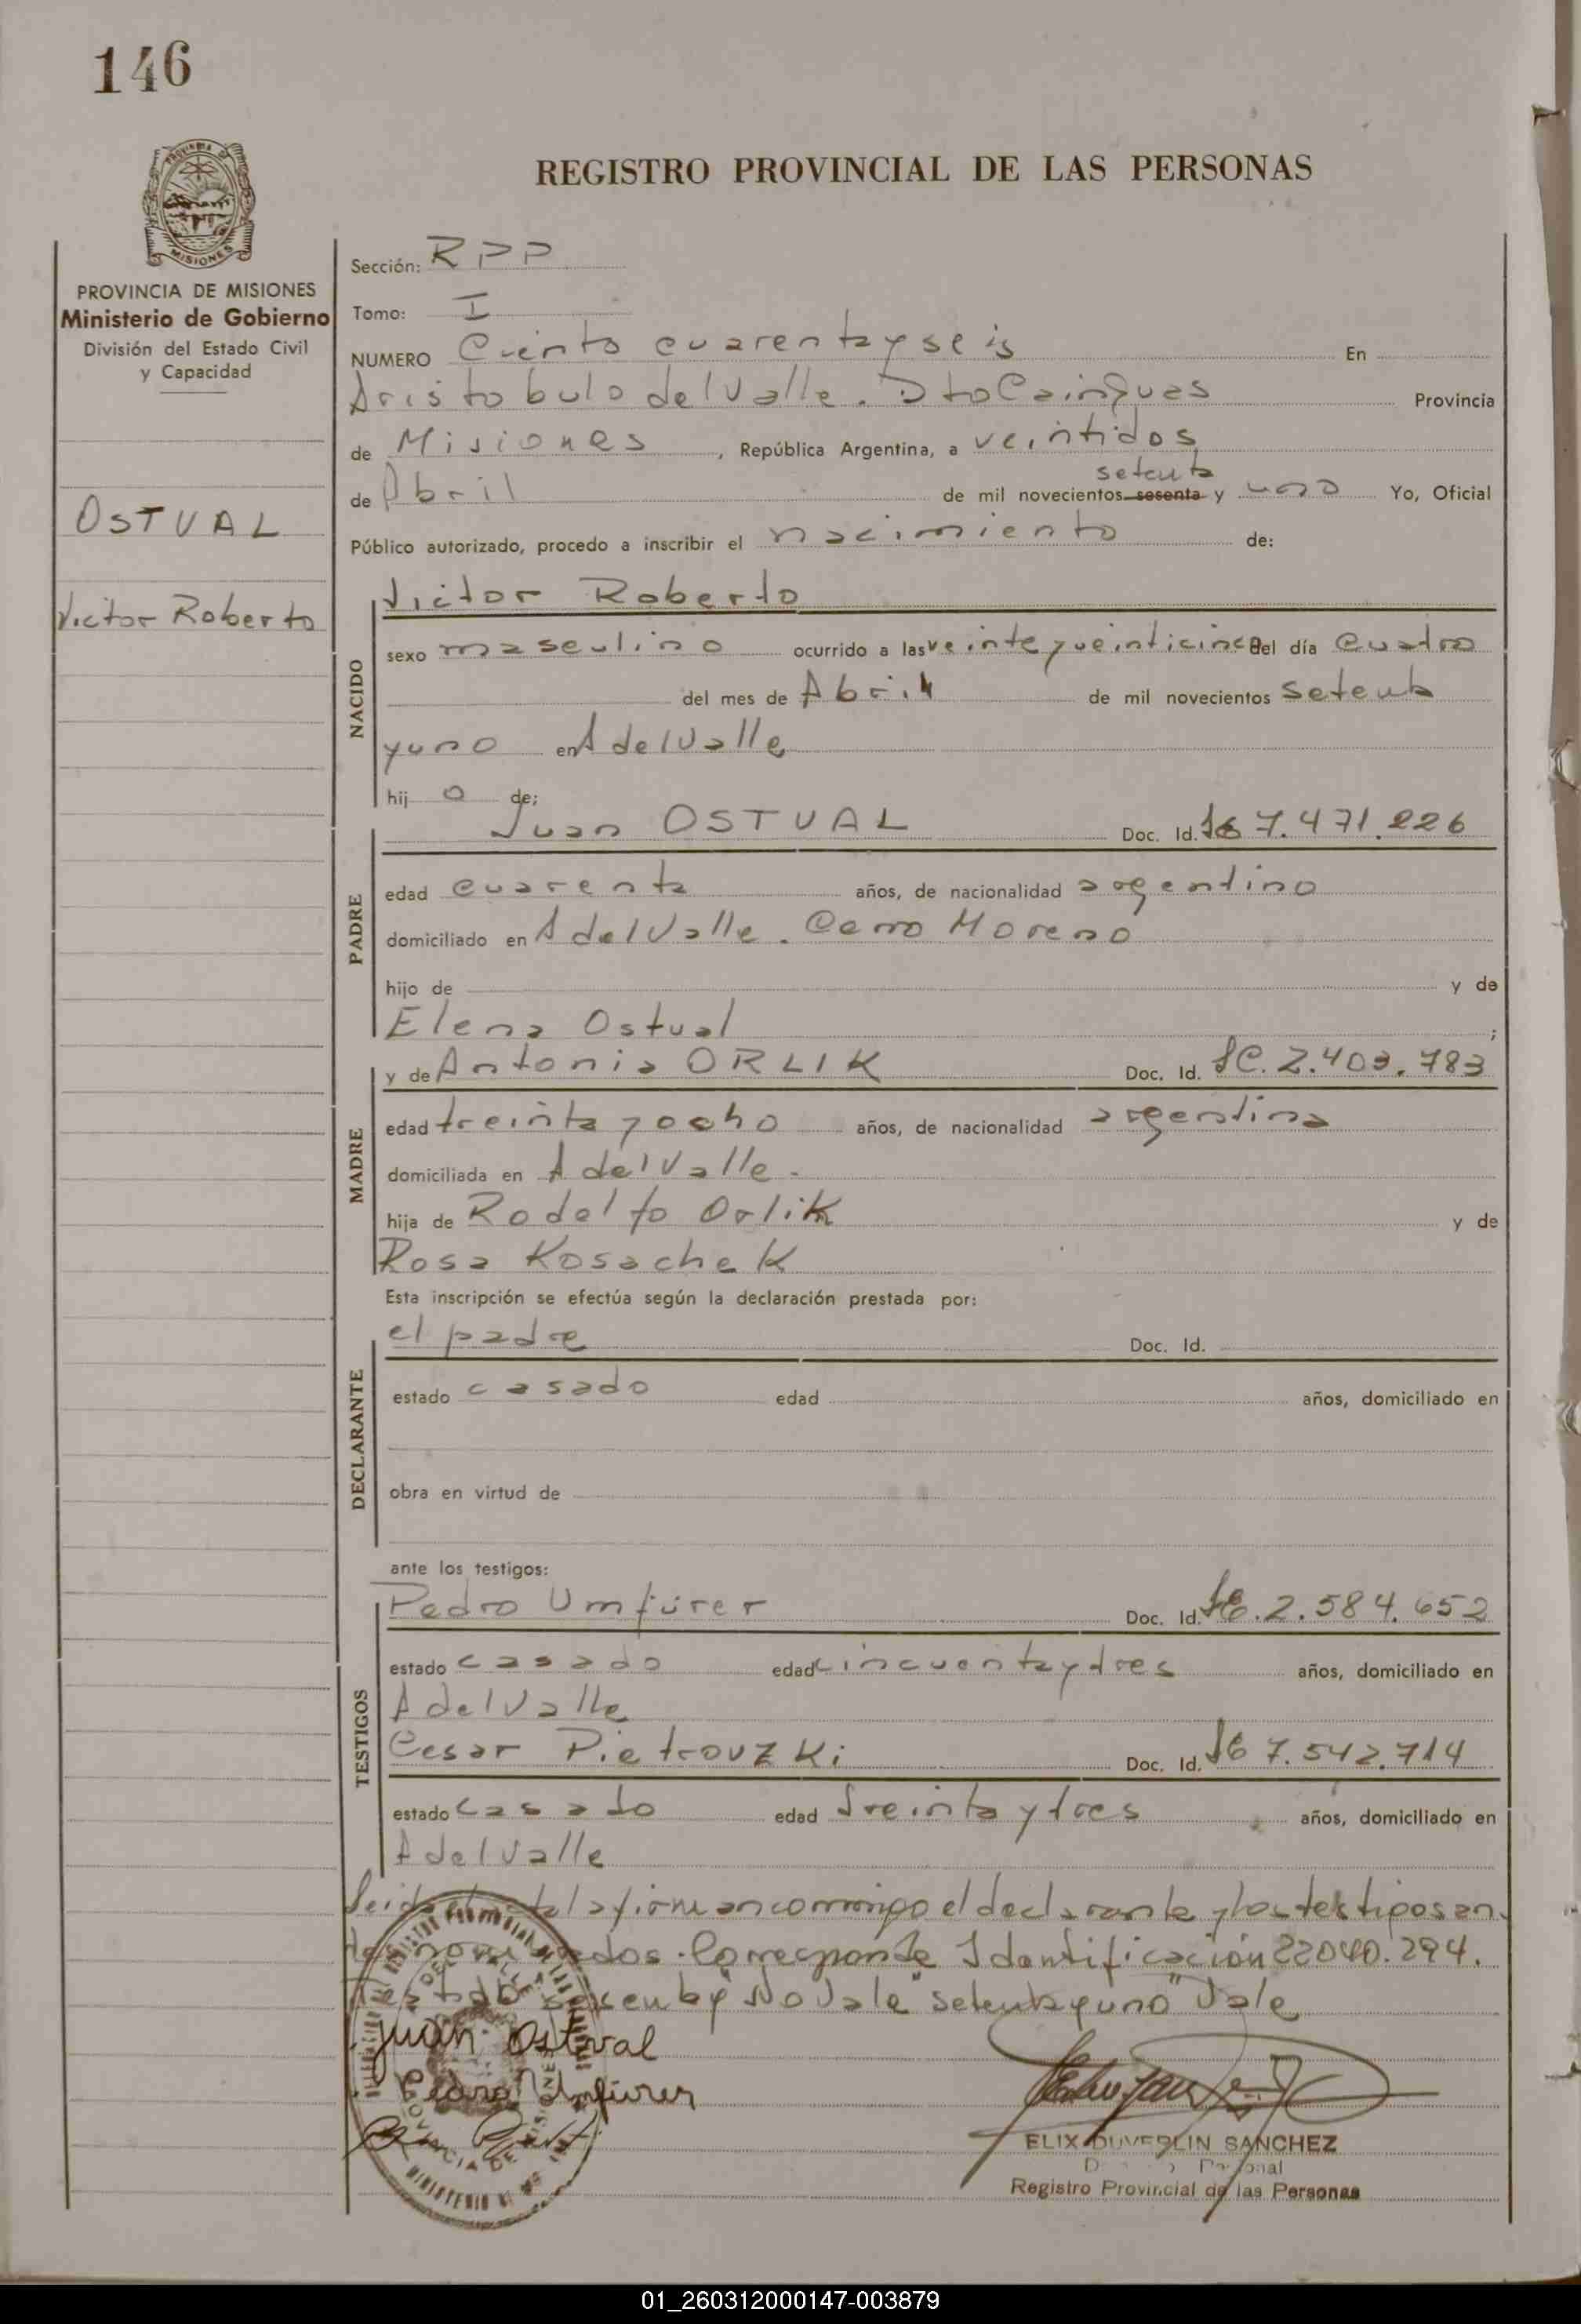 146
REGISTRO PROVINCIAL DE LAS PERSONAS
PROVINCIA DE MISIONES
Ministerio de Gobierno
División del Estado Civil
y Capacidad
OSTUAL
Victor Roberto
Sección: RPP
Tomo: I
NUMERO Ciento cuarenta y seis En
Aristobulo del Valle. Dto Cainguas Provincia
de Misiones, República Argentina, a veintidos
setenta
de Abril de mil novecientos sesenta y uno Yo, Oficial
Público autorizado, procedo a inscribir el nacimiento de:
NACIDO
Victor Roberto
sexo masculino ocurrido a las veinte y veinticinco del día cuatro
del mes de Abril de mil novecientos setenta
y uno en A del Valle
hijo de;
PADRE
Juan OSTUAL Doc. Id. 7.471.226
edad cuarenta años, de nacionalidad argentino
domiciliado en A del Valle. Cerro Moreno
hijo de y de
Elena Ostual ;
MADRE
y de Antonia ORLIK Doc. Id. LC. 2.403.783
edad treinta y ocho años, de nacionalidad argentina
domiciliada en A del Valle.
hija de Rodolfo Orlik y de
Rosa Kosachek
Esta inscripción se efectúa según la declaración prestada por:
DECLARANTE
el padre Doc. Id.
estado casado edad años, domiciliado en
obra en virtud de
ante los testigos:
TESTIGOS
Pedro Umfürer Doc. Id. 2.584.652
estado casado edad cincuenta y tres años, domiciliado en
A del Valle
Cesar Pietrouzki Doc. Id. 7.542.714
estado casado edad treinta y tres años, domiciliado en
A del Valle
Leida el acta la firman conmigo el declarante y los testigos an
tes nombrados. Corresponde Identificación 22040.294.
Testado "sesenta" No Vale "setenta y uno" Vale
Juan Ostual
Pedro Umfürer
ELIX DUVERLIN SANCHEZ
Registro Provincial de las Personas
01_260312000147-003879